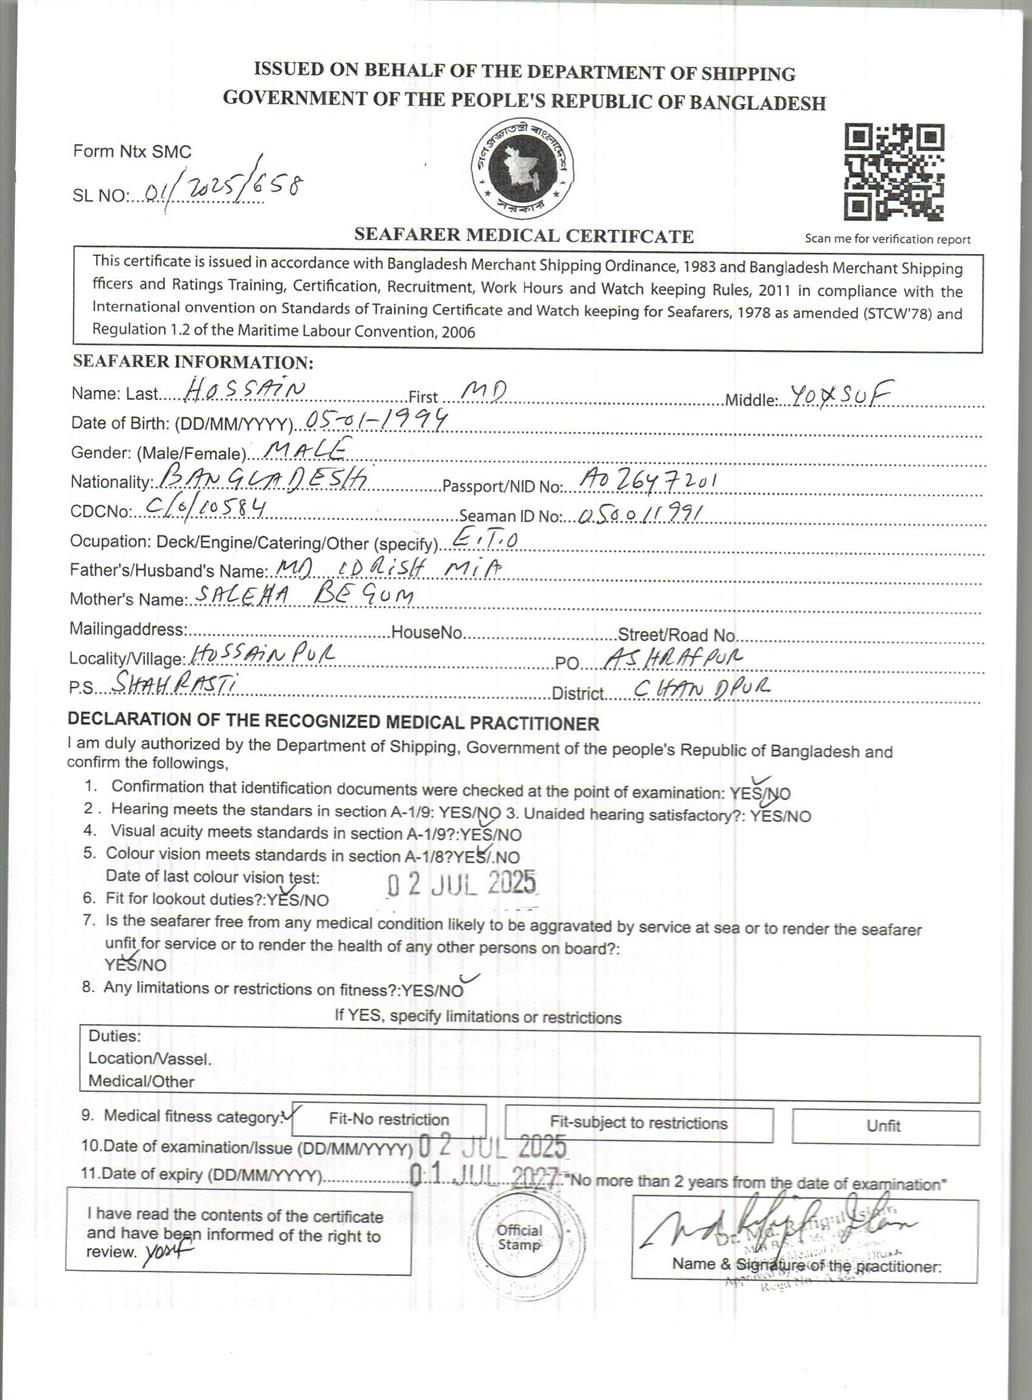 ISSUED ON BEHALF OF THE DEPARTMENT OF SHIPPING
GOVERNMENT OF THE PEOPLE'S REPUBLIC OF BANGLADESH
গণপ্রজাতন্ত্রী বাংলাদেশ
সরকার
Form Ntx SMC
SL NO:..01/2025/658
Scan me for verification report
SEAFARER MEDICAL CERTIFCATE
This certificate is issued in accordance with Bangladesh Merchant Shipping Ordinance, 1983 and Bangladesh Merchant Shipping
fficers and Ratings Training, Certification, Recruitment, Work Hours and Watch keeping Rules, 2011 in compliance with the
International onvention on Standards of Training Certificate and Watch keeping for Seafarers, 1978 as amended (STCW'78) and
Regulation 1.2 of the Maritime Labour Convention, 2006
SEAFARER INFORMATION:
Name: Last....HOSSAIN....First....MD....Middle:..YOUSUF
Date of Birth: (DD/MM/YYYY)..05-01-1994
Gender: (Male/Female)..MALE
Nationality:.BANGLADESHI....Passport/NID No:..A02647201
CDCNo:..C/O/10584....Seaman ID No:..050011991
Ocupation: Deck/Engine/Catering/Other (specify)..E.T.O
Father's/Husband's Name:.MD IDRISH MIA
Mother's Name:.SALEHA BEGUM
Mailingaddress:....HouseNo....Street/Road No.
Locality/Village:.HOSSAINPUR....PO..ASHRAFPUR
P.S...SHAHRASTI....District....CHANDPUR
DECLARATION OF THE RECOGNIZED MEDICAL PRACTITIONER
I am duly authorized by the Department of Shipping, Government of the people's Republic of Bangladesh and
confirm the followings,
1. Confirmation that identification documents were checked at the point of examination: YES/NO
2 . Hearing meets the standars in section A-1/9: YES/NO 3. Unaided hearing satisfactory?: YES/NO
4. Visual acuity meets standards in section A-1/9?:YES/NO
5. Colour vision meets standards in section A-1/8?YES/.NO
Date of last colour vision test: 02 JUL 2025
6. Fit for lookout duties?:YES/NO
7. Is the seafarer free from any medical condition likely to be aggravated by service at sea or to render the seafarer
unfit for service or to render the health of any other persons on board?:
YES/NO
8. Any limitations or restrictions on fitness?:YES/NO
If YES, specify limitations or restrictions
Duties:
Location/Vassel.
Medical/Other
9. Medical fitness category: Fit-No restriction Fit-subject to restrictions Unfit
10.Date of examination/Issue (DD/MM/YYYY) 02 JUL 2025
11.Date of expiry (DD/MM/YYYY)....01 JUL 2027 "No more than 2 years from the date of examination"
I have read the contents of the certificate
and have been informed of the right to
review. yosuf
Official
Stamp
Name & Signature of the practitioner: